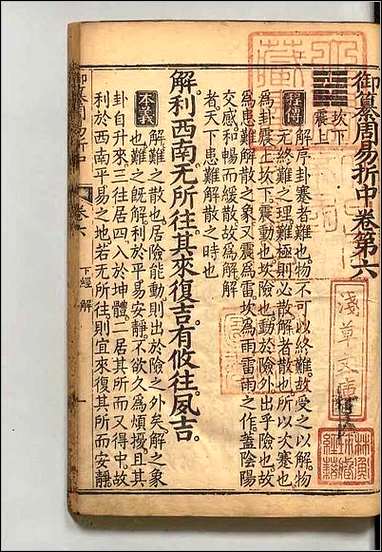 御纂周易折中卷第六
坎下
震上
程傳
解序卦蹇者難也物不可以終難故受之以解物
无終難之理難極則必散解者散也所以次蹇也
為卦震上坎下震動也坎險也動於險外出乎險也故
為患難解散之象又震為雷坎為雨雷雨之作蓋陰陽
交感和暢而緩散故為解解
者天下患難解散之時也
解。利西南。无所往。其來復吉。有攸往。夙吉。
本義
解難之散也居險能動則出於險之外矣解之象
也難之既解利於平易安靜不欲久為煩擾且其
卦自升來三往居四入於坤體二居其所而又得中故
利於西南平易之地若无所往則宜來復其所而安靜
御纂周易折中
卷六
下經 解
一
淺草文庫